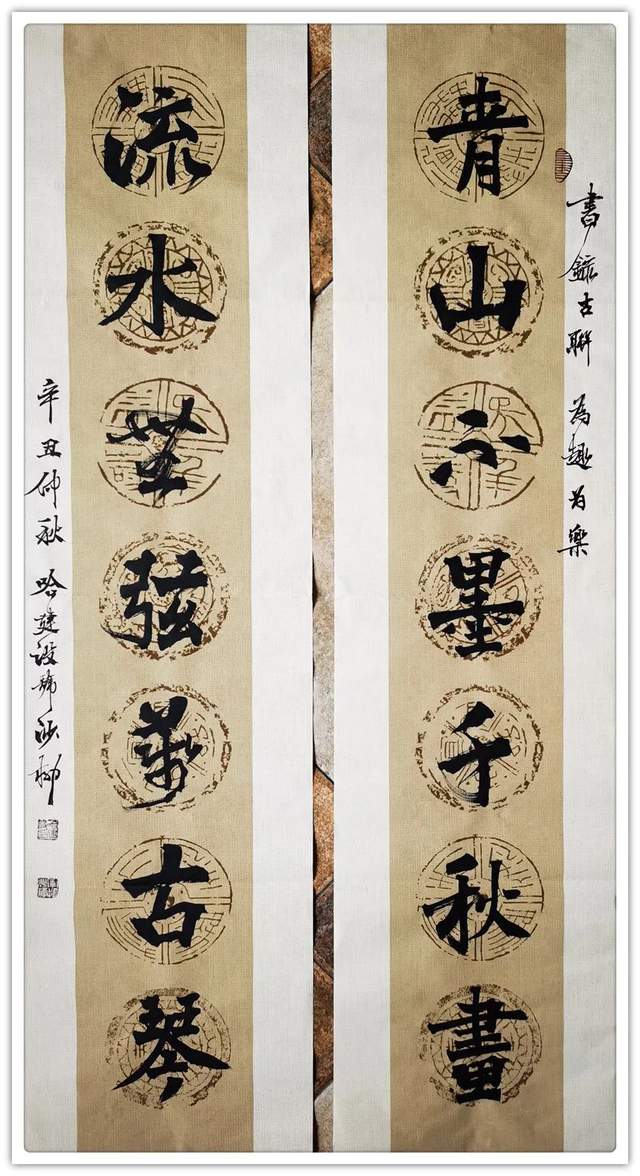 書錄古聯 為趣為樂
青山不墨千秋畫
流水無弦萬古琴
辛丑仲秋 哈建设號沙柳